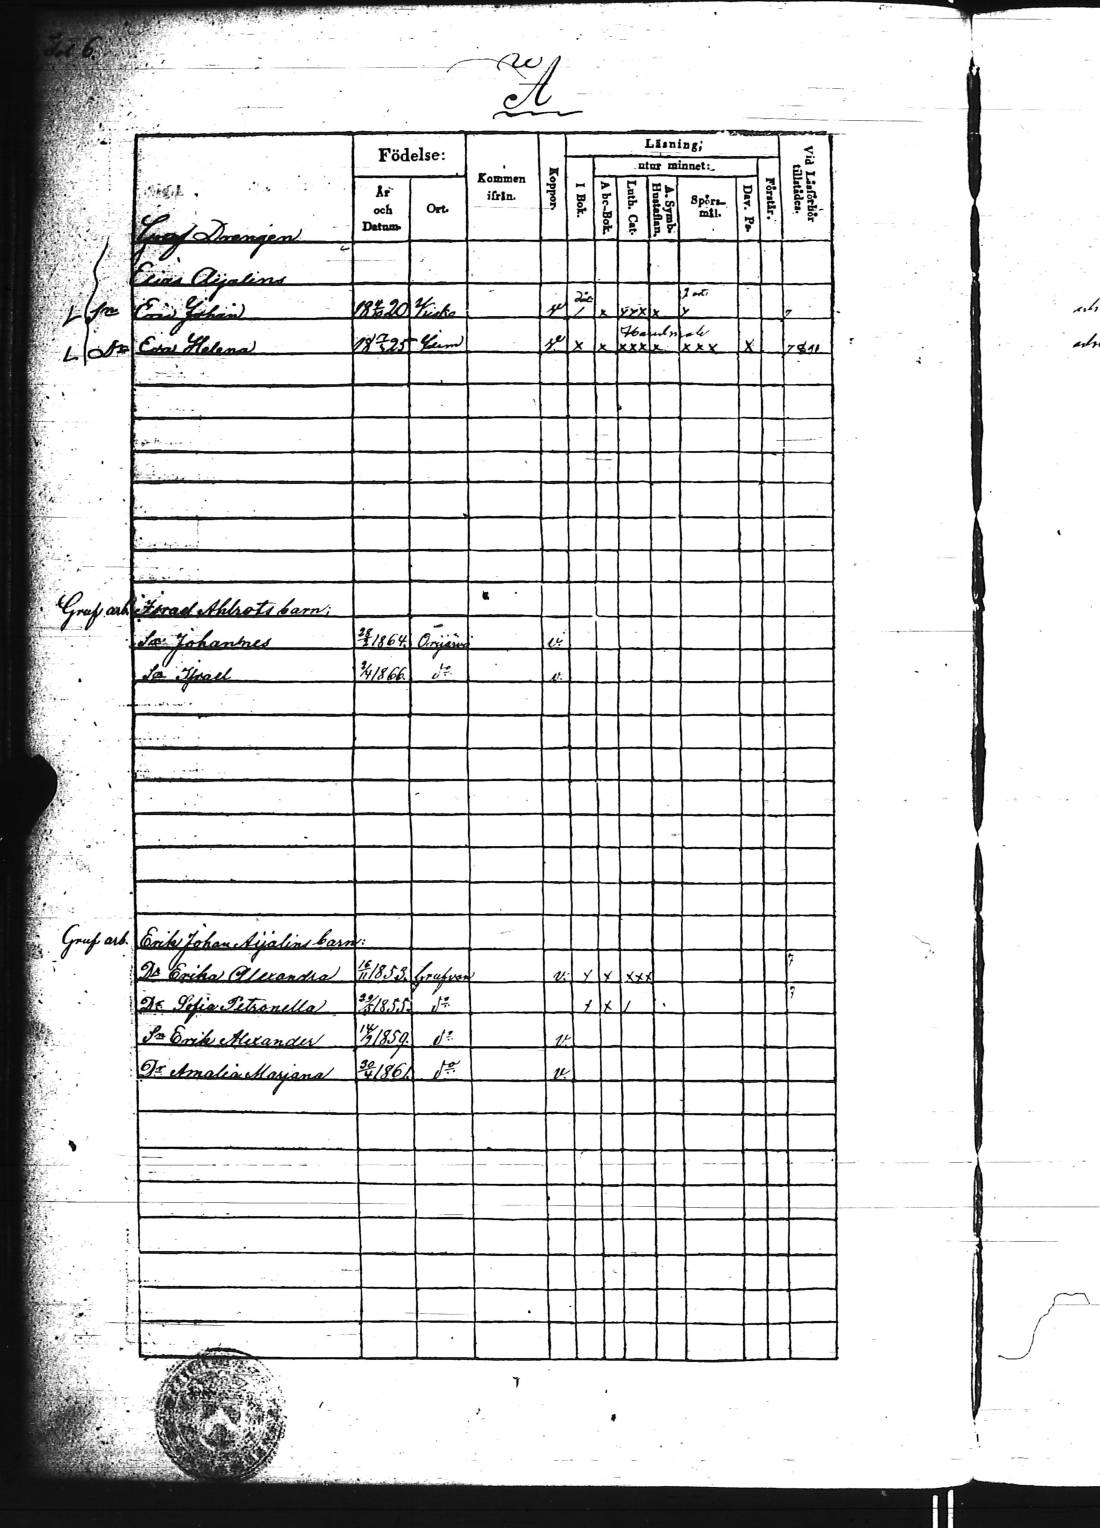 Fol 6.
A
Födelse:
År och Datum.
Ort.
Kommen ifrån.
Koppor.
Läsning;
I Bok.
utur minnet:
Abc-Bok.
Luth. Cat.
A. Symb. Hustaflan.
Spörsmål.
Dav. Ps.
Förstår.
Vid Läsförhör tillstädes.
Graf Drengen
Elias Aijalins
L Sn Johan 1820 Kisko v x x x x x
L Dr Eva Helena 1825 v x x x x x x x x x x
Gruf arb. Israel Ahlrots barn:
Sn Johannes 28/2 1864. Orijärvi v.
Sn Israel 2/4 1866. do v.
Gruf arb. Erik Johan Aijalins barn:
Dr Erika Alexandra 16/11 1853. Grufvan v. x x x x x
Dr Sofia Petronella 1855. do x x /
Sn Erik Alexander 1859. do v.
Dr Amalia Marjana 30/4 1861. do v.